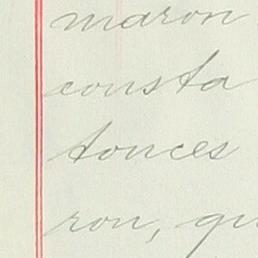 maron
consta
tonces
ron, qu